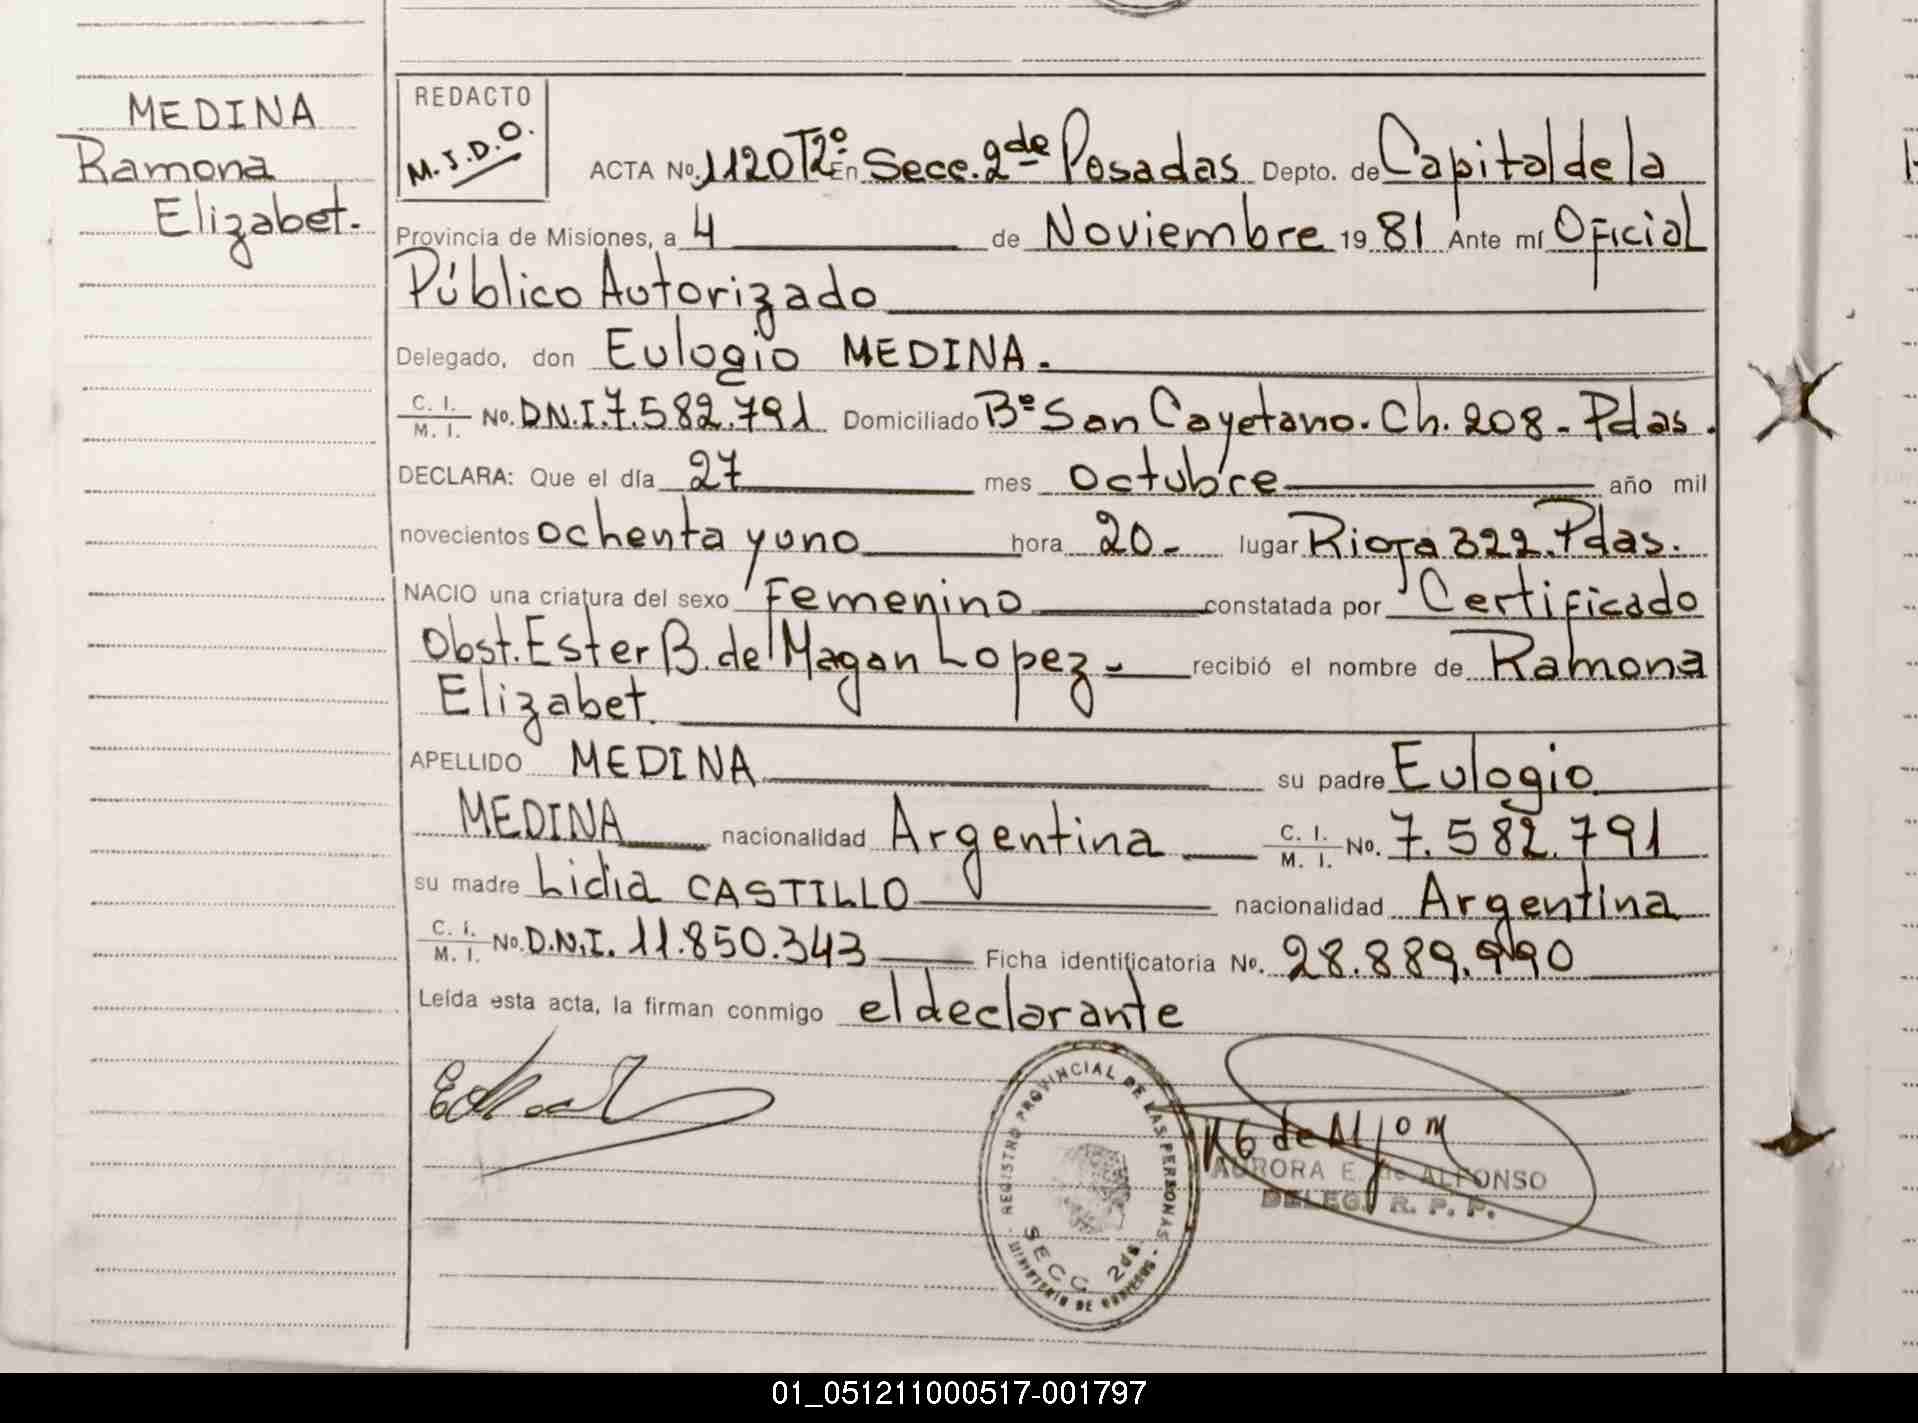 MEDINA
Ramona
Elizabet.
REDACTO
M.J.D.O.
ACTA No. 1120 T2º En Secc. 2de Posadas Depto. de Capital de la
Provincia de Misiones, a 4 de Noviembre 19 81 Ante mí Oficial
Público Autorizado
Delegado, don Eulogio MEDINA.
C. I. / M. I. No. D.N.I. 7.582.791 Domiciliado Bº San Cayetano. Ch. 208 - Pdas.
DECLARA: Que el día 27 mes Octubre año mil
novecientos ochenta y uno hora 20. lugar Rioja 322. Pdas.
NACIO una criatura del sexo Femenino constatada por Certificado
Obst. Ester B. de Magan Lopez - recibió el nombre de Ramona
Elizabet.
APELLIDO MEDINA su padre Eulogio
MEDINA nacionalidad Argentina C. I. / M. I. No. 7.582.791
su madre Lidia CASTILLO nacionalidad Argentina
C. I. / M. I. No. D.N.I. 11.850.343 Ficha identificatoria No. 28.889.990
Leída esta acta, la firman conmigo el declarante
REGISTRO PROVINCIAL DE LAS PERSONAS
SECC 2da
MINISTERIO DE GOBIERNO
AURORA E. de ALFONSO
DELEG. R. P. P.
01_051211000517-001797